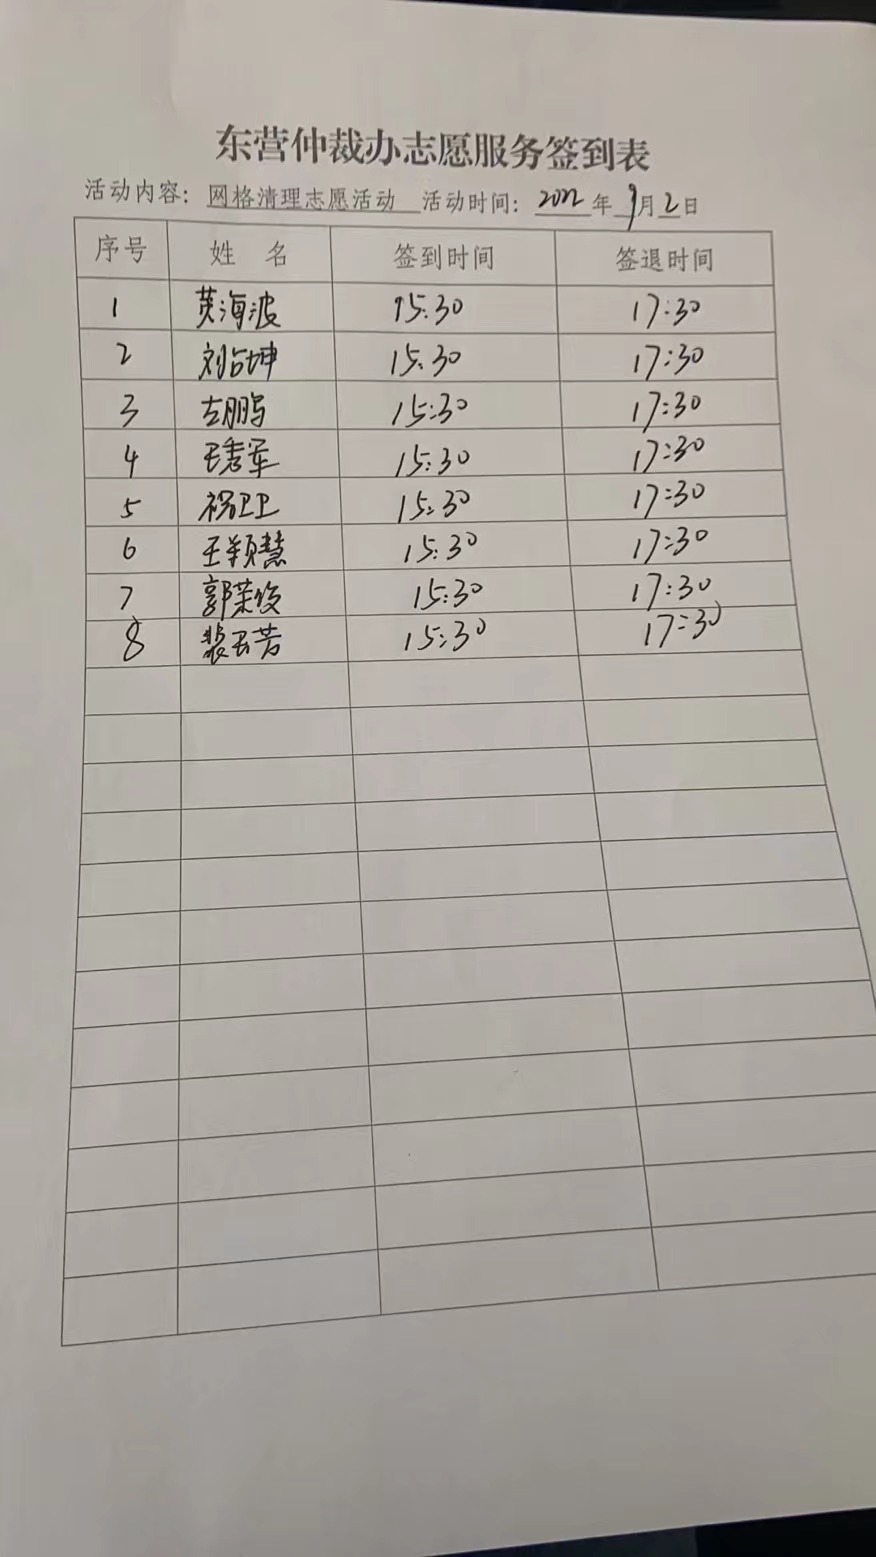 东营仲裁办志愿服务签到表
活动内容: 网格清理志愿活动 活动时间: 2022年9月2日
序号 姓名 签到时间 签退时间
1 黄海波 15:30 17:30
2 刘占坤 15:30 17:30
3 左鹏 15:30 17:30
4 王秀军 15:30 17:30
5 祝卫卫 15:30 17:30
6 王颖慧 15:30 17:30
7 郭荣俊 15:30 17:30
8 裴玉芳 15:30 17:30